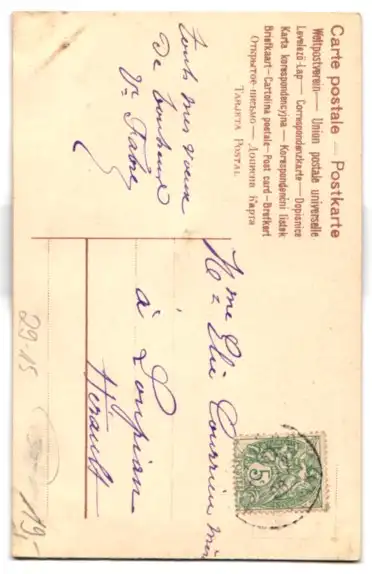 Carte postale — Postkarte
Weltpostverein — Union postale universelle
Levelezö-Lap — Correspondenzkarte — Dopisnice
Karta korespondencyjna — Korespondenční lístek
Briefkaart — Cartolina postale — Post card — Brefkort
Открытое письмо — Дописна Карта
TARJETA POSTAL
tous mes vœux
de bonheur
Fabre
Mme Elie Courrieu
à Loupian
Hérault
5
29-15
19,-